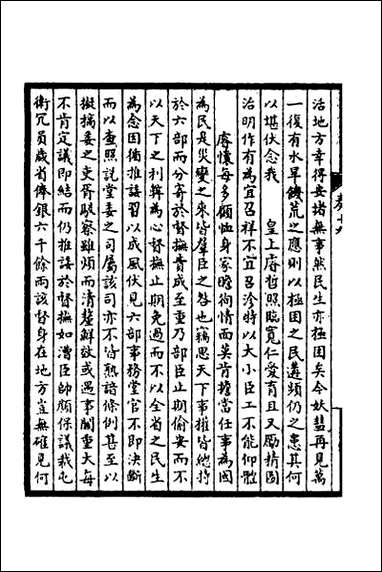 活地方幸得安堵無事然民生亦極困矣今妖彗再見萬
一復有水旱饑荒之應則以極困之民遘頻仍之患其何
以堪伏念我　皇上睿哲照臨寬仁愛育且又勵精圖
治明作有為宜召祥不宜召沴特以大小臣工不能仰體
睿懷每多顧恤身家瞻徇情面矣肯擔當任事為國
為民是災變之來皆羣臣之咎也竊思天下事權皆總持
於六部而分寄於督撫責成至重乃部臣止期偷安而不
以天下之利弊為心督撫止期免過而不以全省之民生
為念因循推諉習以成風伏見六部事務堂官不即決斷
而以查照說堂委之司屬該司亦不皆熟諳條例甚至以
擬稿委之吏胥駁察雖煩而清釐鮮效或遇事關重大每
不肯定議即結而仍推諉於督撫如漕臣帥顏保議裁屯
衛冗員歲省俸銀六千餘兩該督身在地方豈無確見何